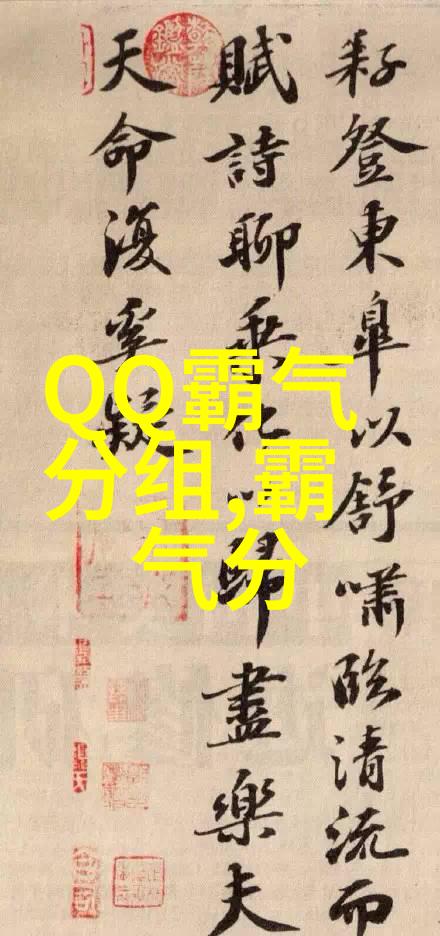 耔登東皐以舒嘯臨清流而
賦詩聊乗化以歸盡樂夫
天命復奚疑
QQ霸气
分组,霸
气分